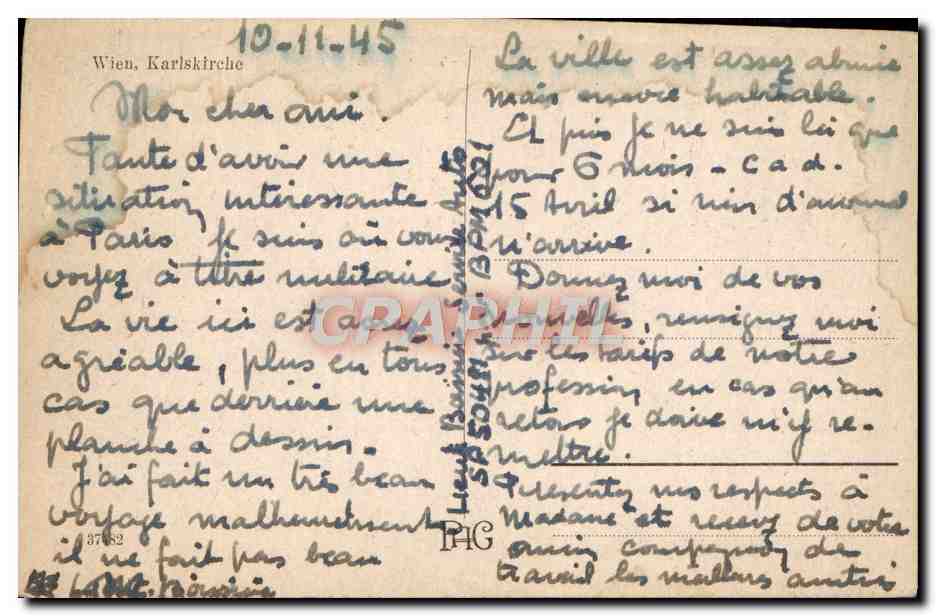 10-11-45
Wien, Karlskirche
Mon cher ami.
Faute d'avoir une
situation intéressante
à Paris je suis où vous
voyez à titre militaire
La vie ici est assez
agréable, plus en tous
cas que derrière une
planche à dessin.
J'ai fait un très beau
voyage malheureusement
il ne fait pas beau
La ville est assez abimée
mais encore habitable.
Et puis je ne suis ici que
pour 6 mois - c a d.
15 Avril si rien d'anormal
n'arrive.
Donnez moi de vos
nouvelles, renseignez moi
sur les tarifs de notre
profession, en cas qu'au
retour je doive m'y re-
mettre.
Présentez mes respects à
Madame et recevez de votre
ancien compagnon de
travail les meilleurs amitiés
Lieut Service Auto
SP 50411 BPM 621
37482
PAG
GRAPHIL